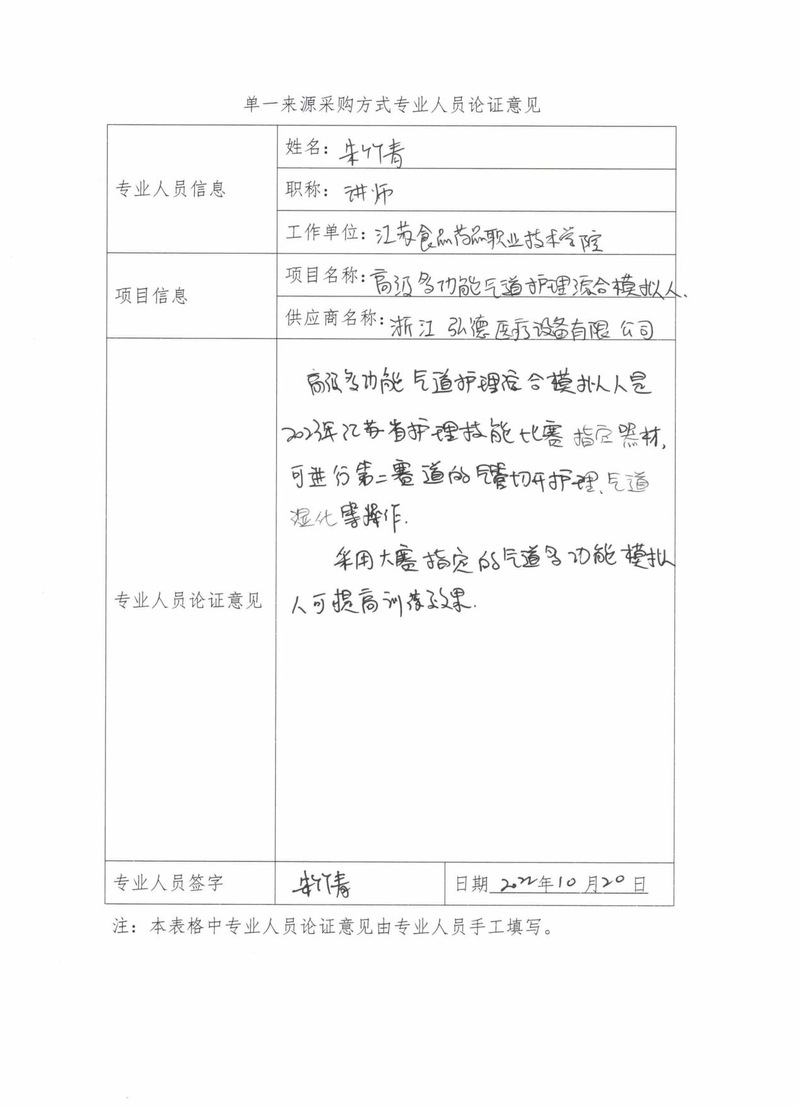 单一来源采购方式专业人员论证意见
专业人员信息
姓名：朱竹青
职称：讲师
工作单位：江苏食品药品职业技术学院
项目信息
项目名称：高级多功能气道护理综合模拟人.
供应商名称：浙江弘德医疗设备有限公司
专业人员论证意见
高级多功能气道护理综合模拟人是
2023年江苏省护理技能比赛指定器材，
可进行第二赛道的气管切开护理、气道
湿化等操作.
采用大赛指定的气道多功能模拟
人可提高训练效果.
专业人员签字
朱竹青
日期 2022年10月20日
注：本表格中专业人员论证意见由专业人员手工填写。